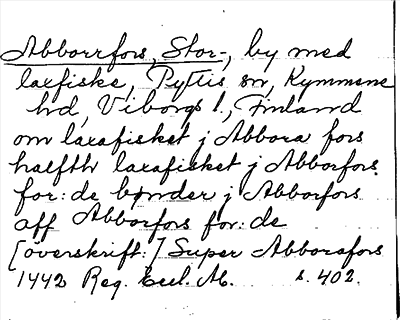 Abborrfors, Stor-, by med
laxfiske, Pyttis sn, Kymmene
hd, Viborgs l., Finland
om laxafisket j Abbora fors
halfth laxafisket j Abborfors
for: de bønder j Abborfors
aff Abborfors for: de
[överskrift:] Super Abborafors
1442 Reg. Eccl. Ab. s. 402.